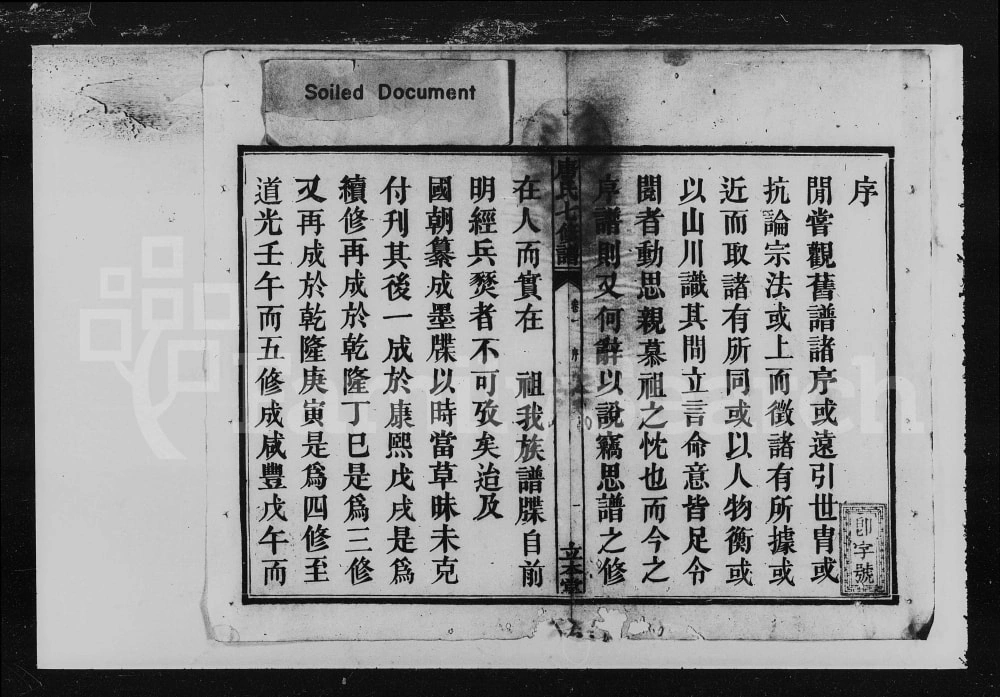 Soiled Document
序
閒嘗觀舊譜諸序或遠引世胄或
抗論宗法或上而徵諸有所據或
近而取諸有所同或以人物衡或
以山川識其間立言命意皆足令
閱者動思親慕祖之忱也而今之
序譜則又何辭以說竊思譜之修
唐氏七修譜
卷一
序
一
立本堂
在人而實在 祖我族譜牒自前
明經兵燹者不可攷矣迨及
國朝纂成墨牒以時當草昧未克
付刊其後一成於康熙戊戌是爲
續修再成於乾隆丁巳是爲三修
又再成於乾隆庚寅是爲四修至
道光壬午而五修成咸豐戊午而
卽字號